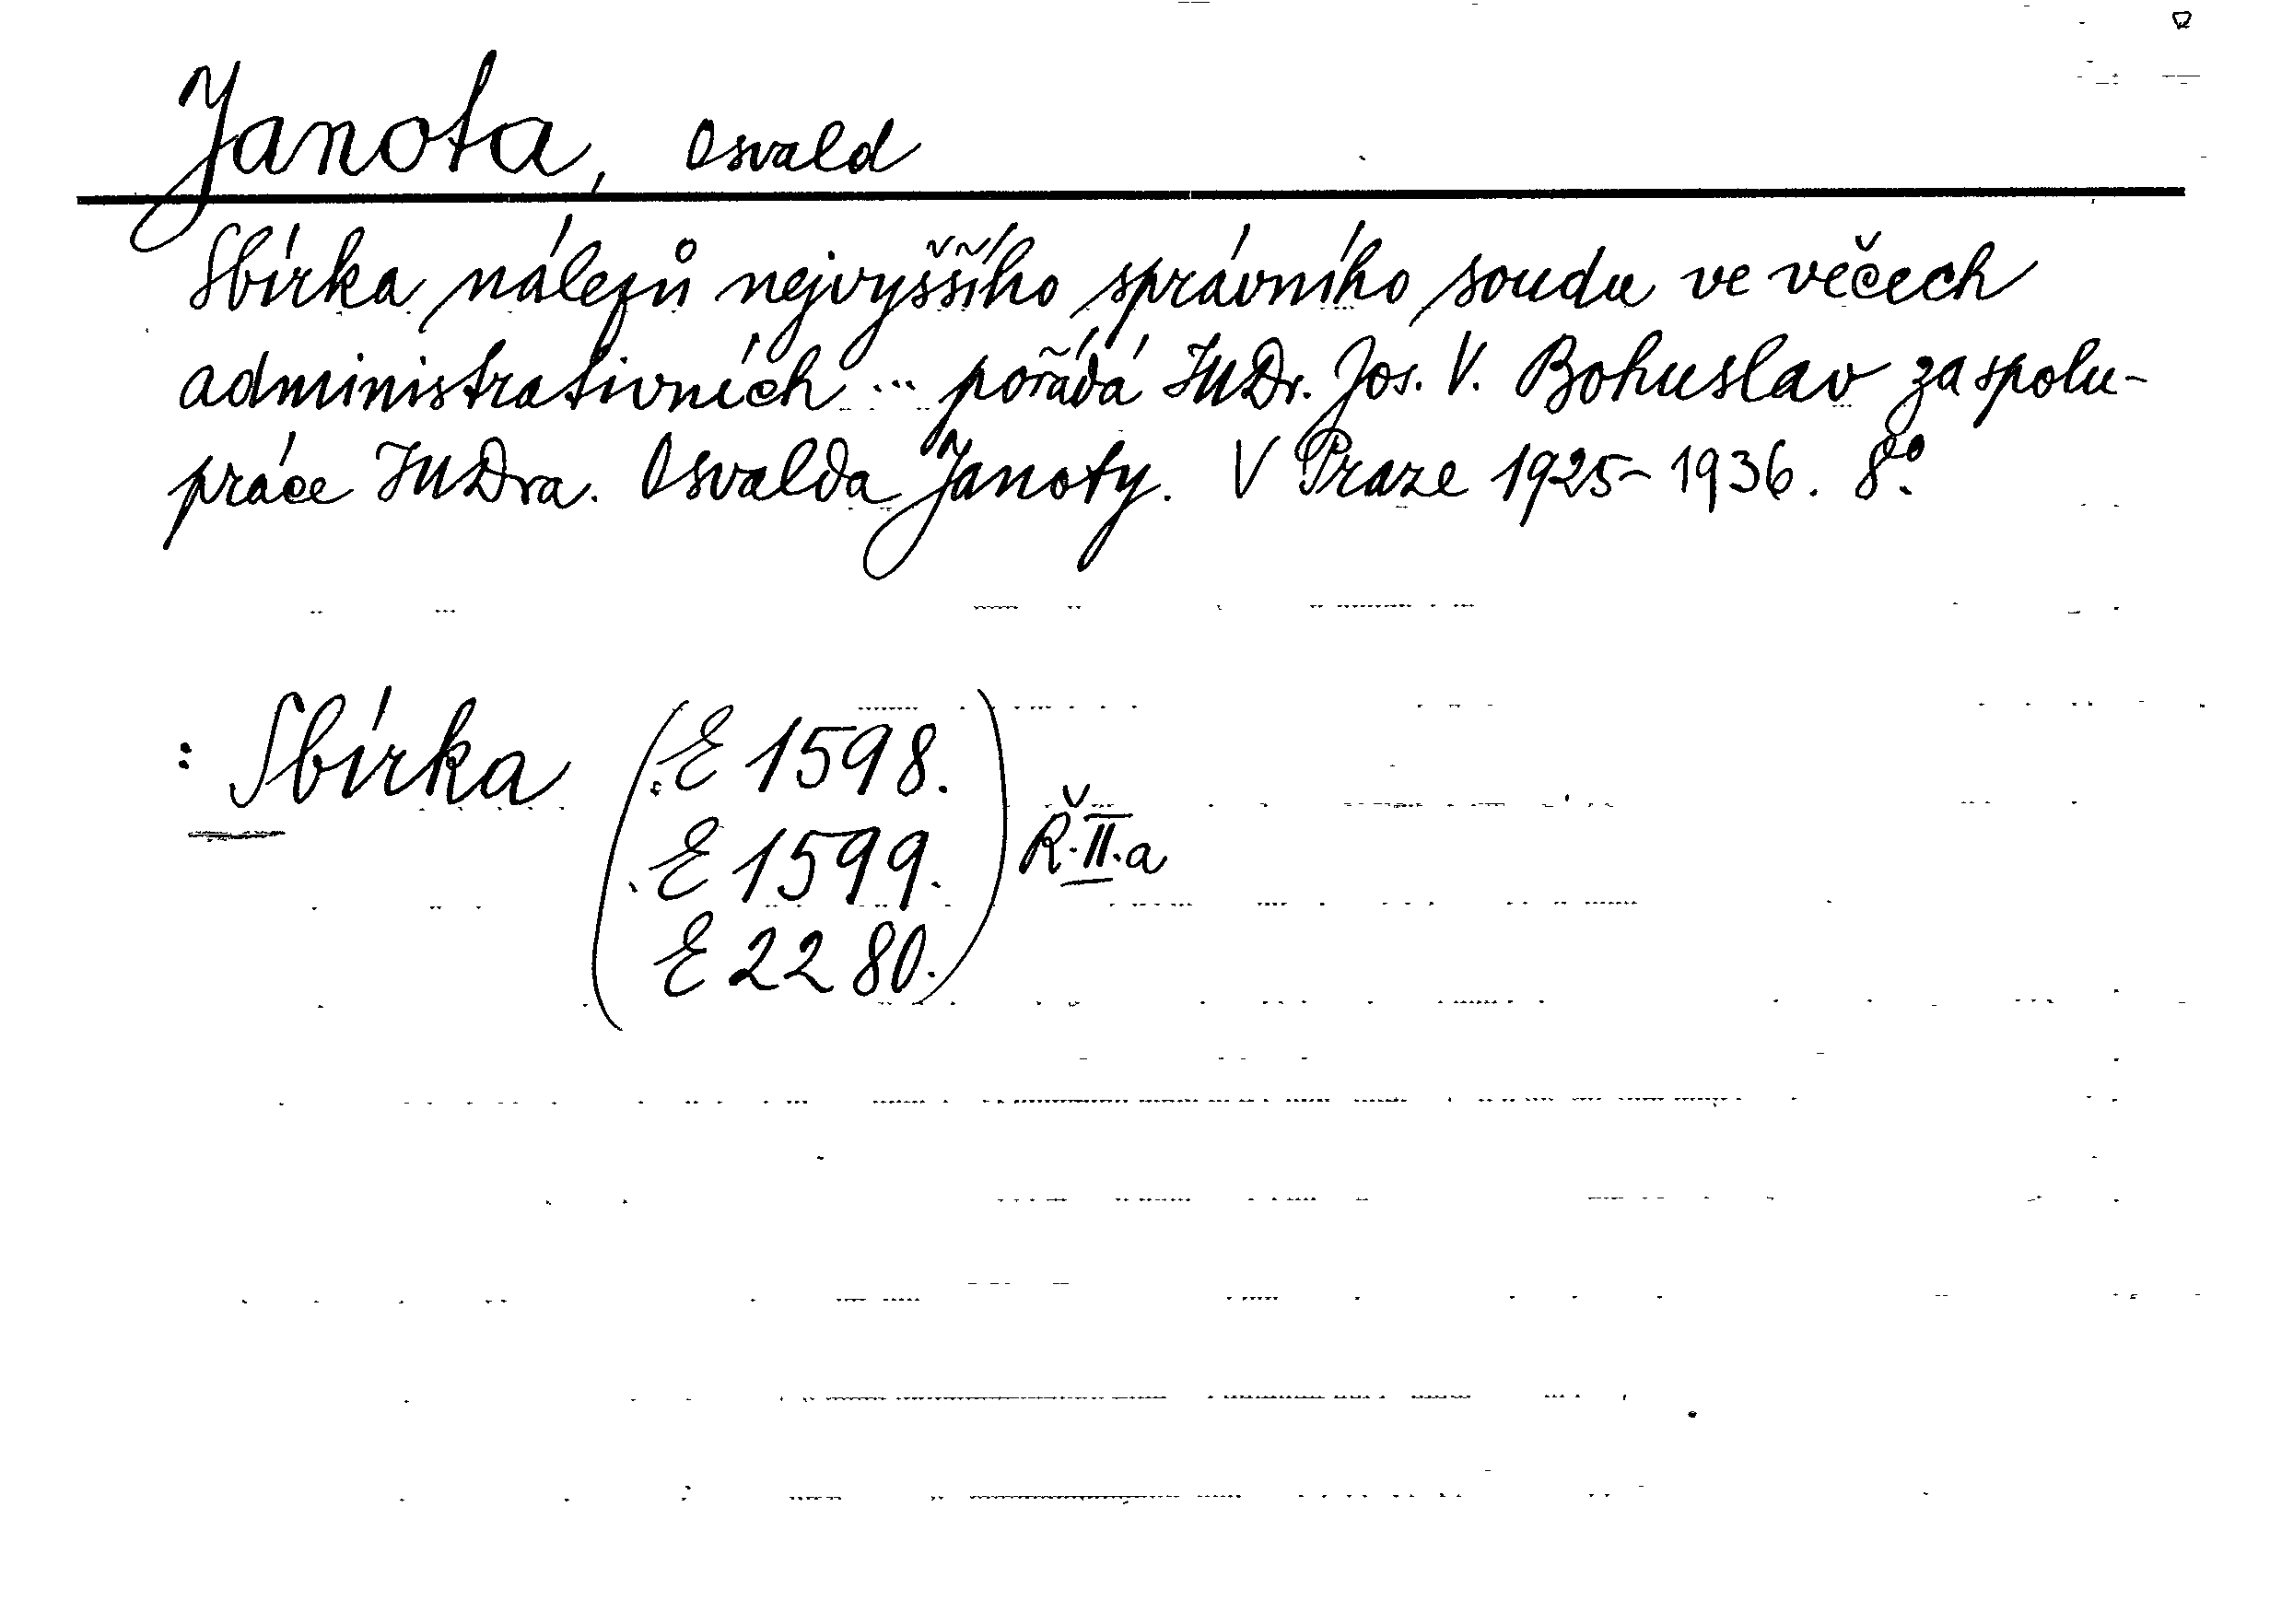 Janota, Osvald
Sbírka nálezů nejvyššího správního soudu ve věcech
administrativních ... pořádá JUDr. Jos. V. Bohuslav za spolu-
práce JUDra. Osvalda Janoty. V Praze 1925-1936. 8°.
: Sbírka (E 1598.
E 1599.
E 2280.) Ř.II.a